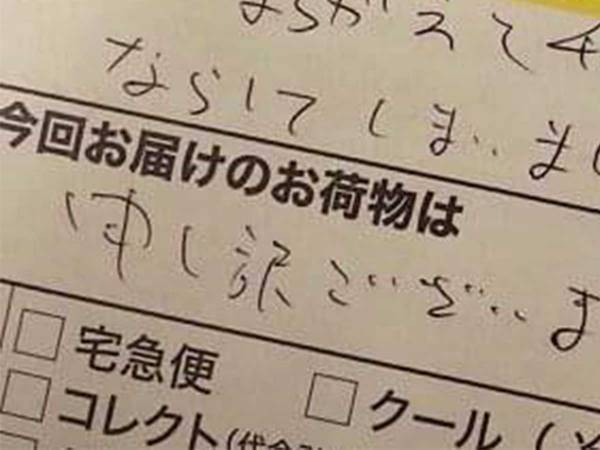 まちがえて
ならしてしまいまし
今回お届けのお荷物は
申し訳ございま
宅急便
クール
コレクト(代金